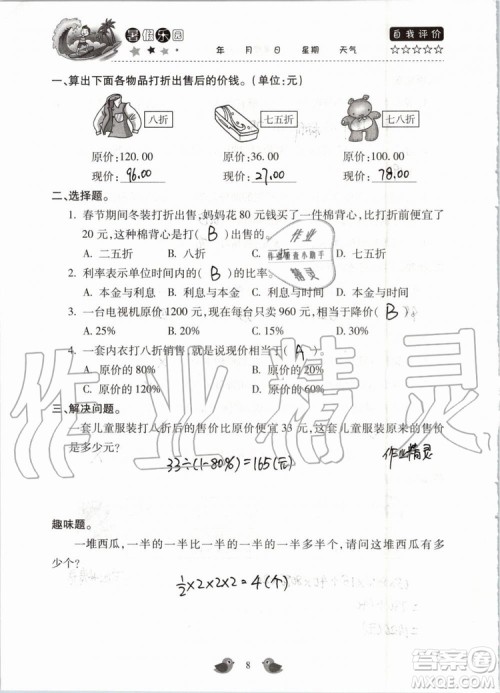 暑假乐园
年 月 日 星期 天气
自我评价
☆☆☆☆☆
一、算出下面各物品打折出售后的价钱。(单位:元)
八折 七五折 七八折
原价:120.00 原价:36.00 原价:100.00
现价:96.00 现价:27.00 现价:78.00
二、选择题。
1. 春节期间冬装打折出售,妈妈花 80 元钱买了一件棉背心,比打折前便宜了
20 元,这种棉背心是打( B )出售的。
A. 二五折 B. 八折 C. 二折 D. 七五折
2. 利率表示单位时间内的( B )的比率。
A. 本金与利息 B. 利息与本金 C. 利息与时间 D. 本金与时间
3. 一台电视机原价 1200 元,现在每台只卖 960 元,相当于降价( B )。
A. 25% B. 20% C. 15% D. 30%
4. 一套内衣打八折销售,就是说现价相当于( A )。
A. 原价的 80% B. 原价的 20%
C. 原价的 120% D. 原价的 160%
三、解决问题。
一套儿童服装打八折后的售价比原价便宜 33 元,这套儿童服装原来的售价
是多少元?
33÷(1-80%)=165(元)
作业精灵
趣味题。
一堆西瓜,一半的一半比一半的一半的一半多半个,请问这堆西瓜有多
少个?
½×2×2×2=4(个)
8
作业
作业检查小助手
精灵
作业精灵
答案圈
MXQE.COM